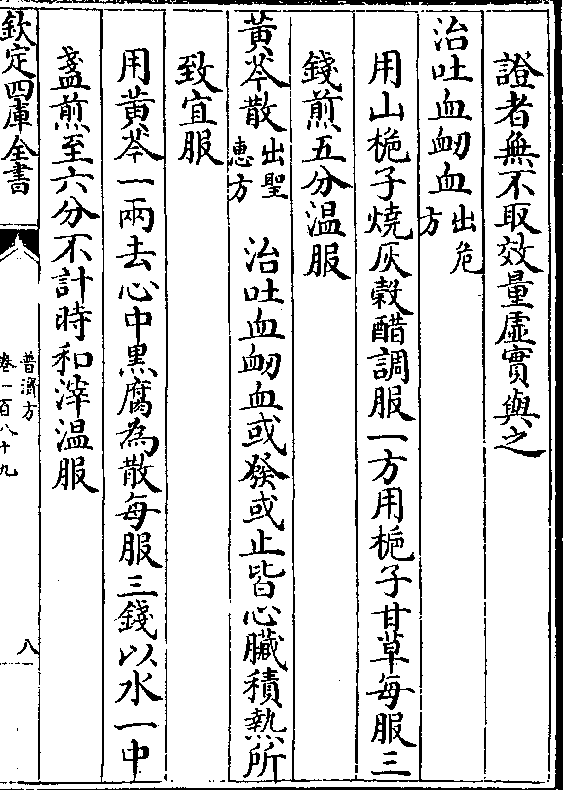 證者無不取效量虛實與之
治吐血衂血出危方
用山梔子燒灰䅽醋調服一方用梔子甘草每服三
錢煎五分溫服
黃芩散出聖惠方 治吐血衂血或發或止皆心臟積熱所
致宜服
用黃芩一兩去心中黑腐為散每服三錢以水一中
盞煎至六分不計時和滓溫服
欽定四庫全書
普濟方
卷一百八十九
八